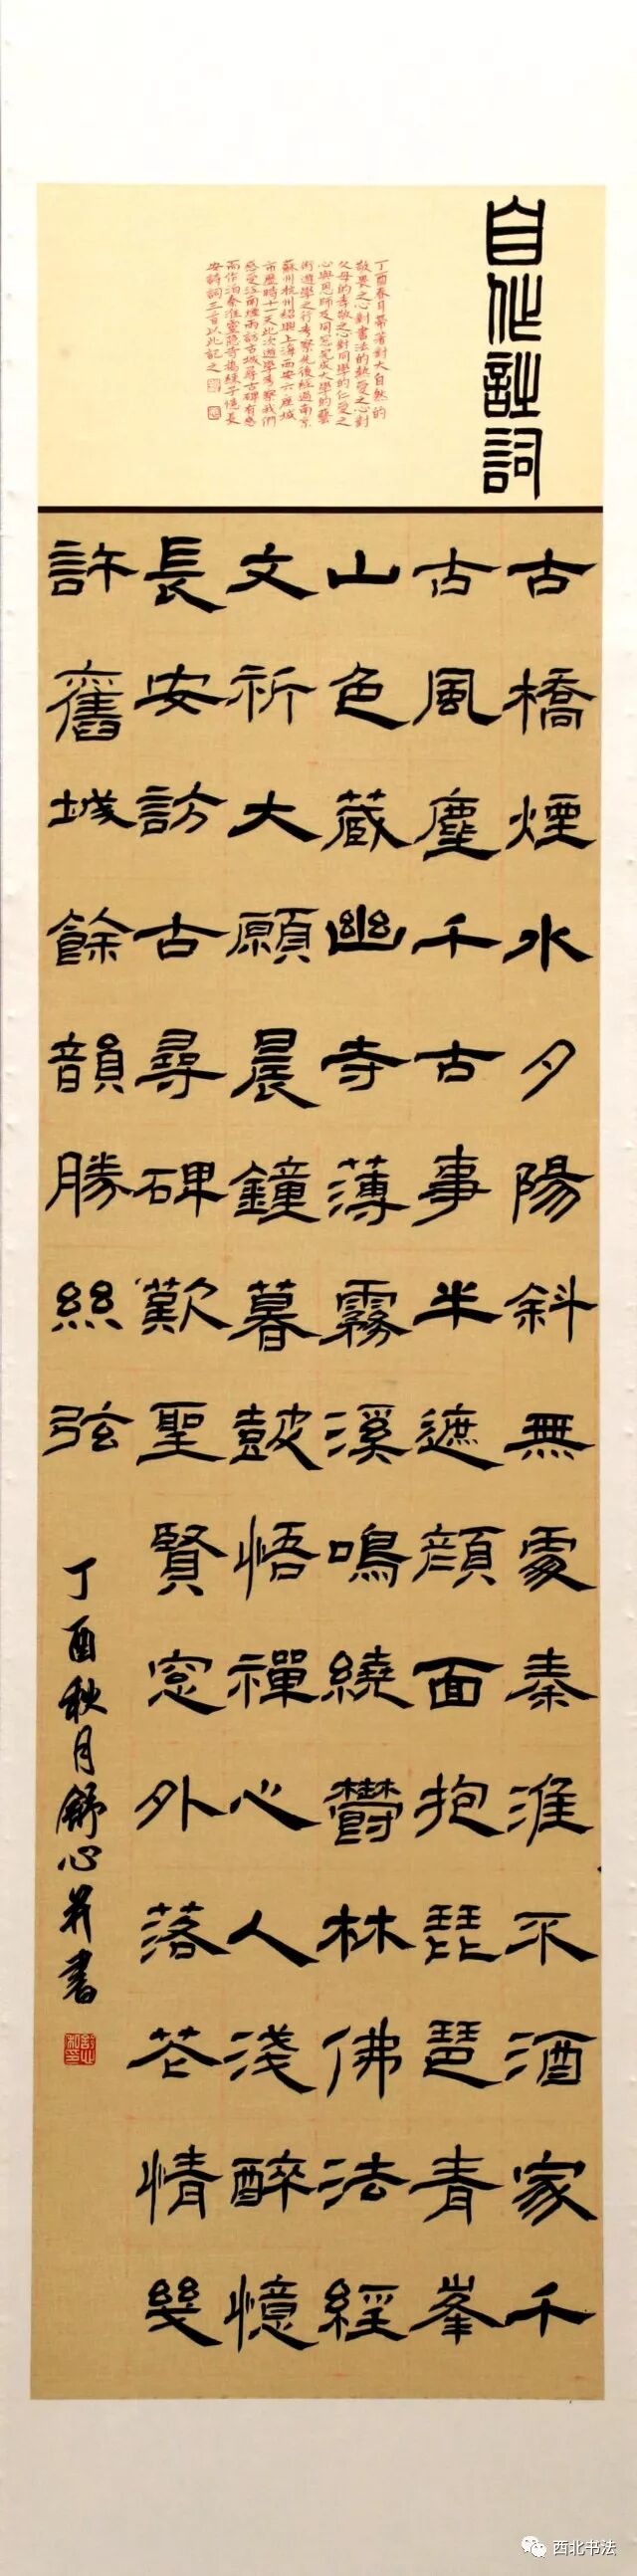 自作詩詞
丁酉春月帶著對大自然的
敬畏之心對書法的熱愛之心對
父母的孝敬之心對同學的仁愛之
心與恩師及同窗完成大學的藝
術遊學之行考察先後經過南京
蘇州杭州紹興上海西安六座城
市歷時十一天此次遊學考察我們
感受江南煙雨訪古城尋古碑有感
而作泊秦淮靈隱寺搗練子憶長
安詩詞三首以此記之
古橋煙水夕陽斜無處秦淮不酒家千
古風塵千古事半遮顏面抱琵琶青峯
山色藏幽寺薄霧溪鳴繞鬱林佛法經
文祈大願晨鐘暮鼓悟禪心人淺醉憶
長安訪古尋碑歎聖賢窓外落花情幾
許舊城餘韻勝絲弦
丁酉秋月舒心并書
西北书法